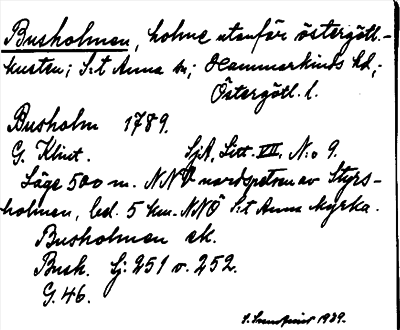 Busholmen, holme utanför östergötl.-
kusten; S:t Anna sn; Hammarkinds hd,;
Östergötl. l.
Busholm 1789.
G. Klint. SjA, Litt. VII, N:o 9.
Läge 500 m. NNV nordspetsen av Styrs-
holmen, bel. 5 km. NNO S:t Anna kyrka.
Busholmen ek.
Busk. Sj: 251 v. 252.
G. 46.
1939.